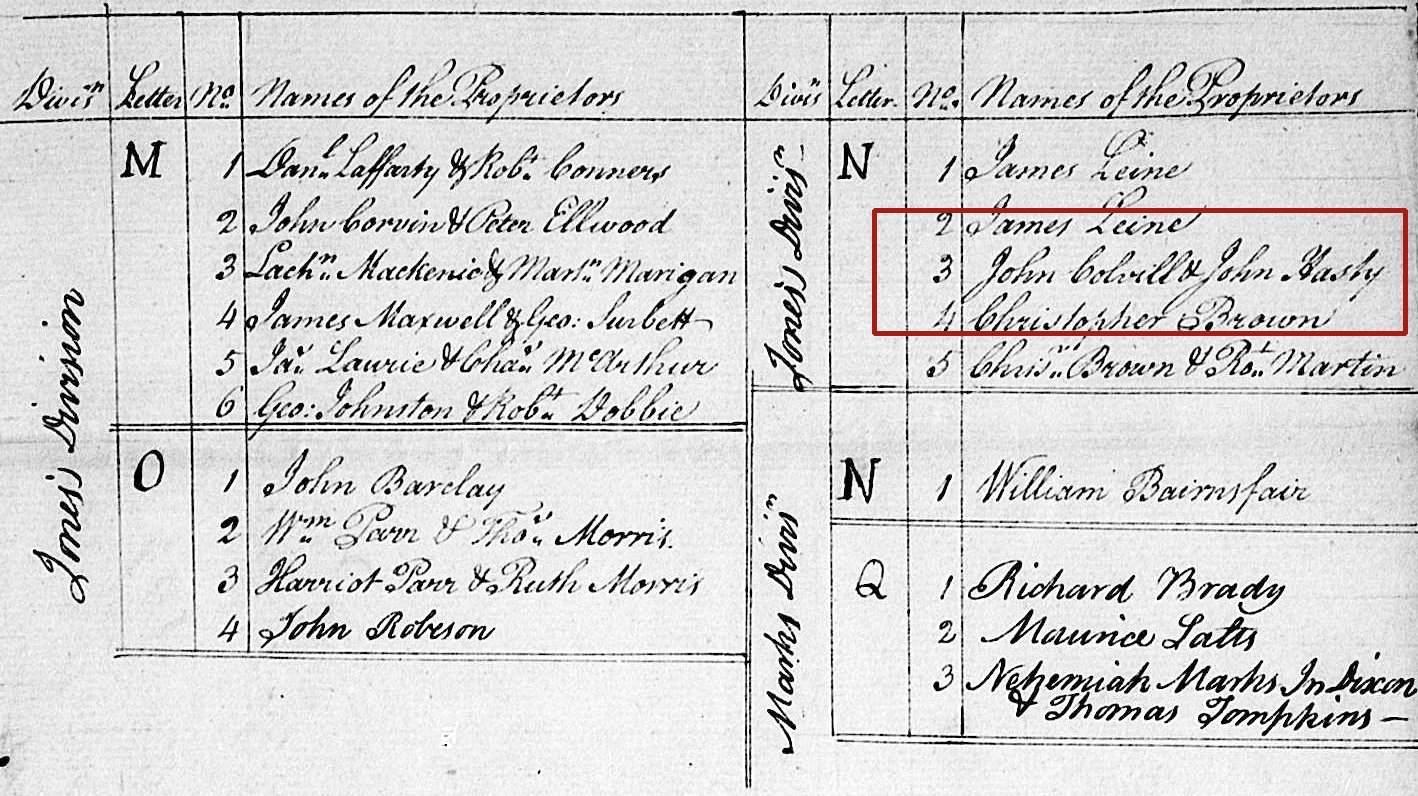 Divisn Letter No. Names of the Proprietors
Jones's Division
M 1 Danl. Laffarty & Robt. Conners
2 John Corvin & Peter Ellwood
3 Lachn. Mackenie & Martn. Marigan
4 James Maxwell & Geo: Surbett
5 Jas. Laurie & Chas. McArthur
6 Geo: Johnston & Robt. Dobbie
O 1 John Barclay
2 Wm. Parr & Thos. Morris.
3 Harriot Parr & Ruth Morris
4 John Robeson
Divis Letter. No. Names of the Proprietors
Jones's Divisn
N 1 James Leine
2 James Leine
3 John Colvill & John Hasty
4 Christopher Brown
5 Chrisr. Brown & Rot. Martin
Marks Divisn
N 1 William Bairnsfair
Q 1 Richard Brady
2 Maurice Salts
3 Nehemiah Marks Jn Dixon
& Thomas Tompkins —